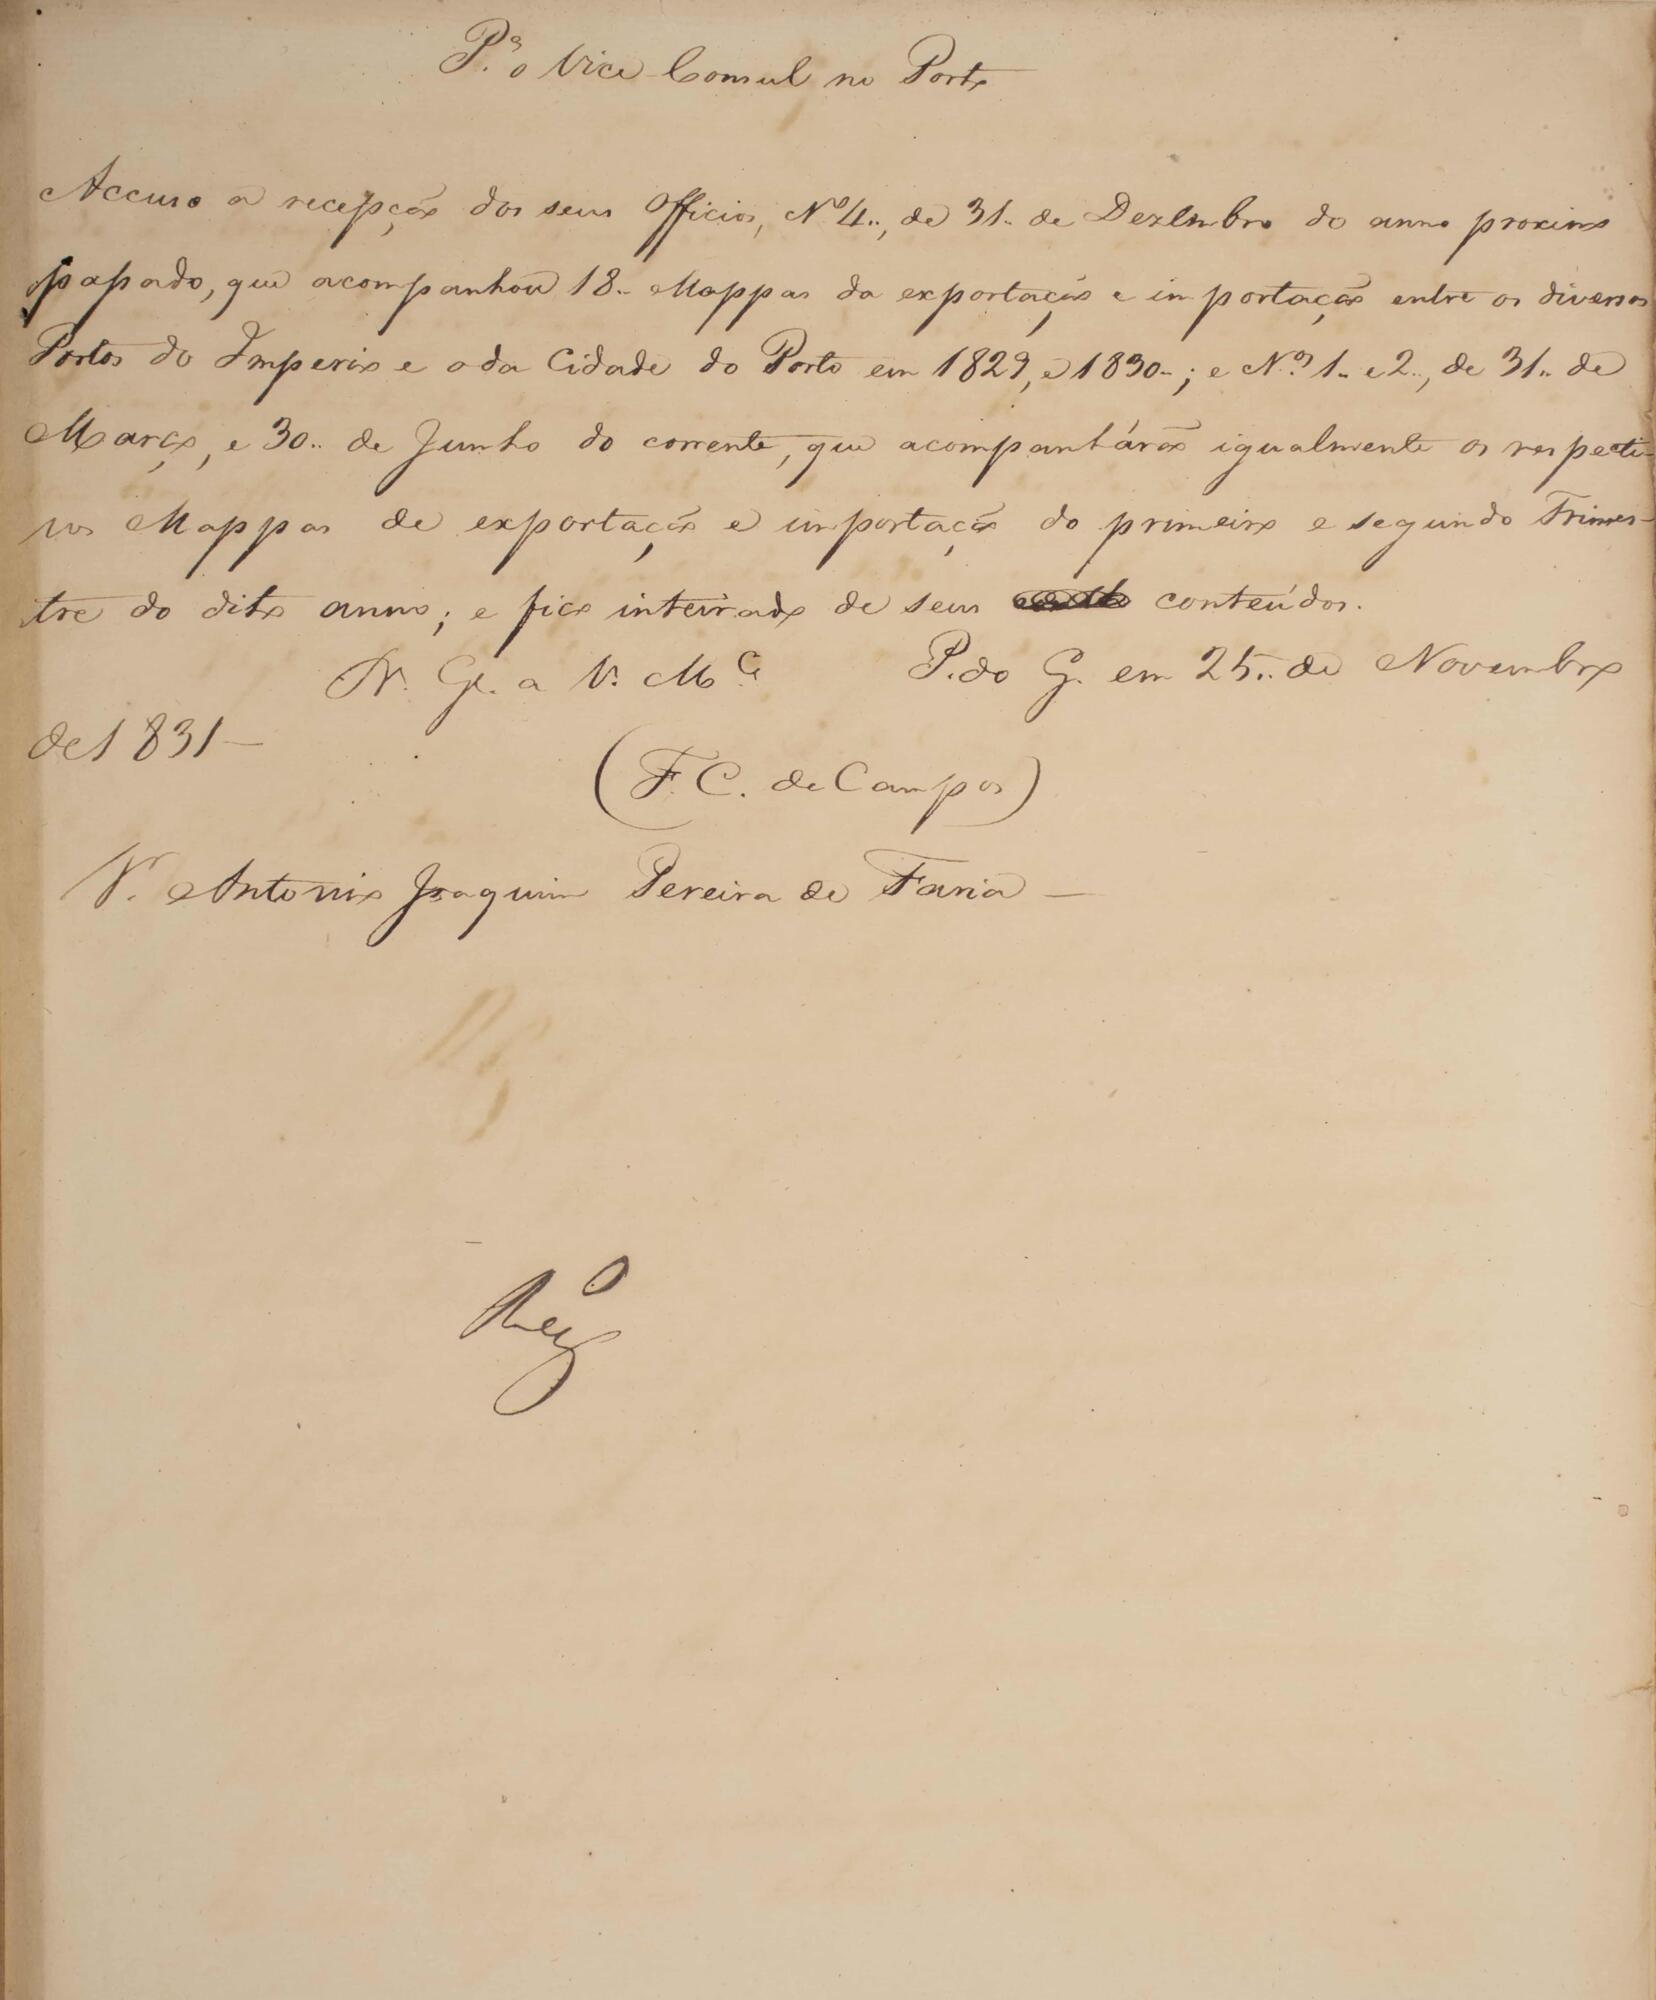 P.ª o Vice Consul no Porto
Accuso a recepção dos seus Officios, Nº 4.., de 31.. de Dezembro do anno proximo
passado, que acompanhou 18.. Mappas da exportação e importação entre os diversos
Portos do Imperio e o da Cidade do Porto em 1829, e 1830..; e Nos 1.. e 2.., de 31.. de
Março, e 30.. de Junho do corrente, que acompanhárão igualmente os respecti-
vos Mappas de exportação e importação do primeiro e segundo Trimes-
tre do dito anno; e fico inteirado de seus conteúdos.
D. Ge. a V. Mce P. do G. em 25.. de Novembro
de 1831 —
(F. C. de Campos)
Sr. Antonio Joaquim Pereira de Faria —
Rego